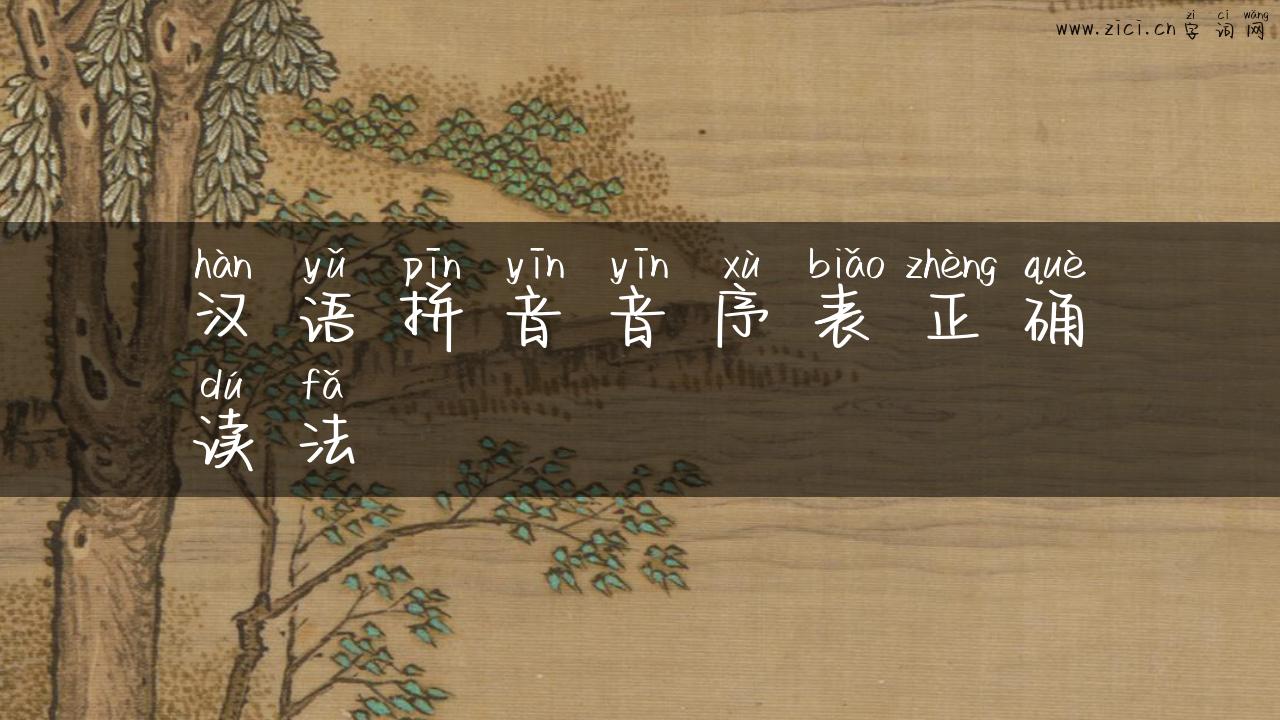 zì cí wǎng
www.zici.cn 字词网
hàn yǔ pīn yīn yīn xù biǎo zhèng què
汉语拼音音序表正确
dú fǎ
读法